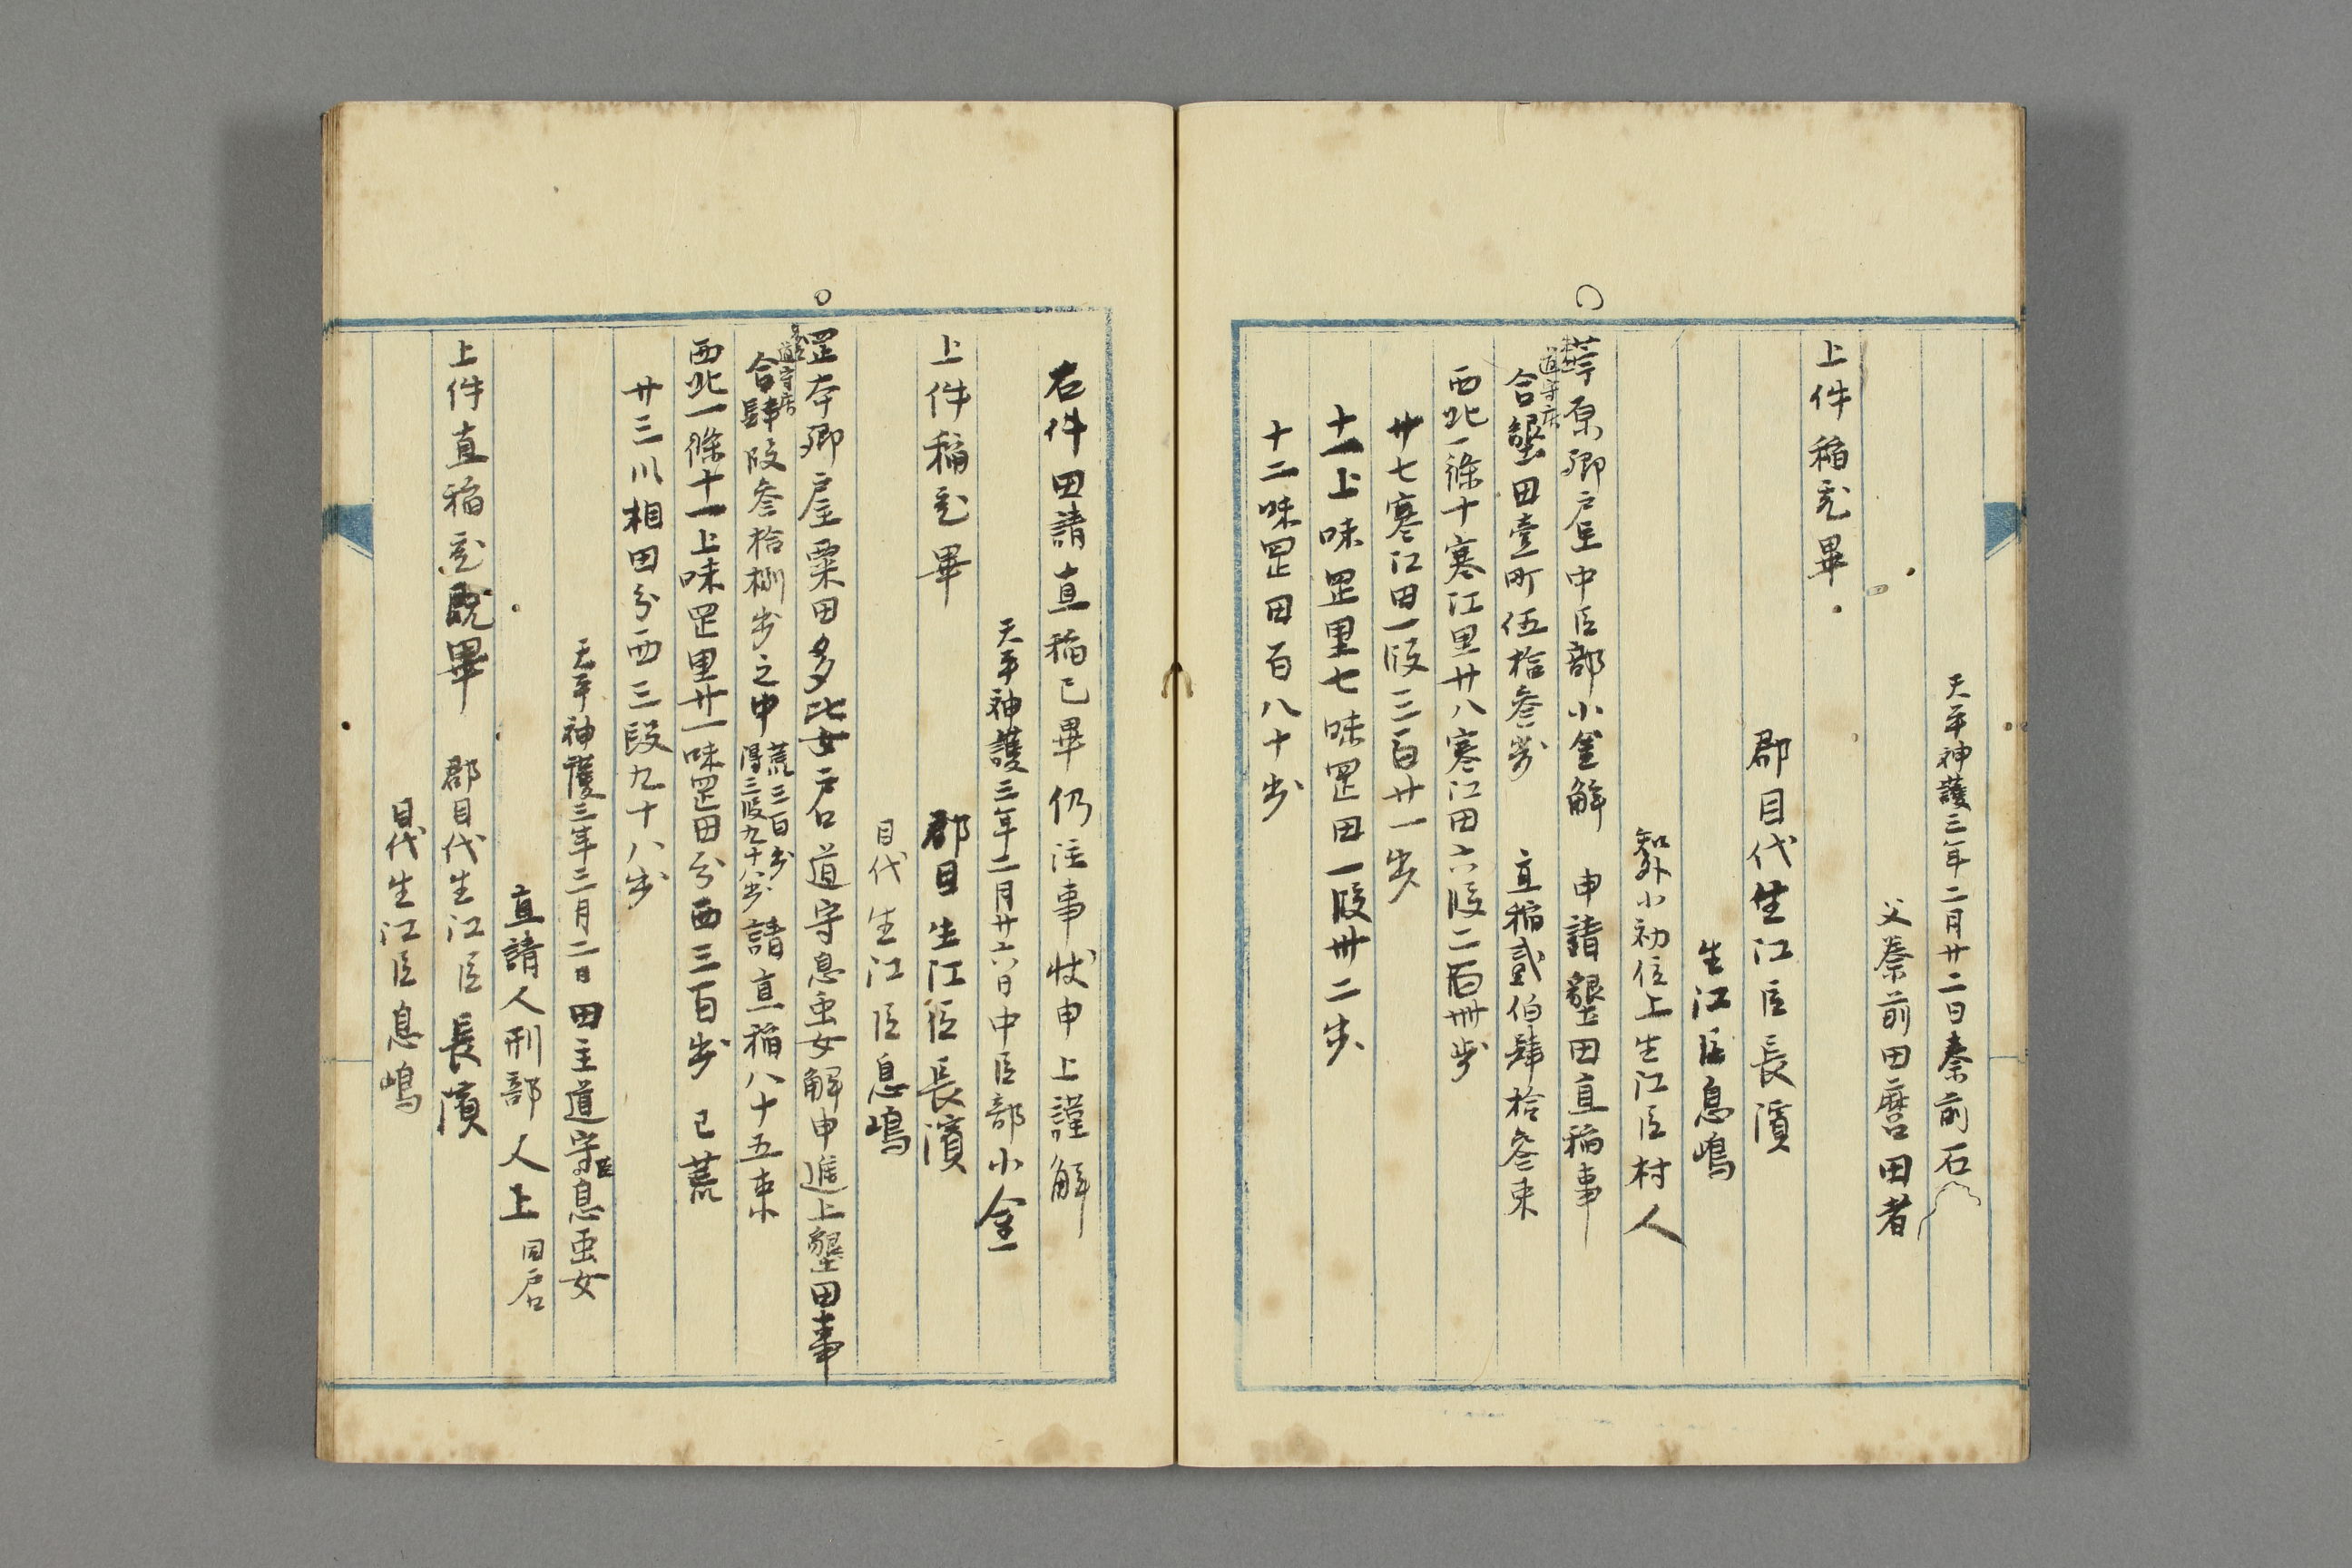 天平神護三年二月廿二日秦前石
父秦前田麿田者
上件稲充畢
郡目代生江臣長濱
生江臣息嶋
知外小初位上生江臣村人
原郷戸主中臣部小金解 申請墾田直稲事
道守庄
合墾田壹町伍拾参歩 直稲貳伯肆拾参束
西北一條十寒江里廿八寒江田六段二百卌歩
廿七寒江田一段三百廿一歩
十一上味岡里七味岡田一段卌二歩
十二味岡田百八十歩
右件田請直稲已畢仍注事状申上謹解
天平神護三年二月廿六日中臣部小金
上件稲充畢
郡目生江臣長濱
目代生江臣息嶋
岡本郷戸主粟田多比女戸口道守息虫女解申進上墾田事
道守庄
合肆段参拾捌歩之中 荒三百歩 得三段九十八歩 請直稲八十五束
西北一條十一上味岡里廿一味岡田分西三百歩 已荒
廿三川相田分西三段九十八歩
天平神護三年三月二日田主道守臣息虫女
直請人刑部人上 同戸
上件直稲充既畢 郡目代生江臣長濱
目代生江臣息嶋